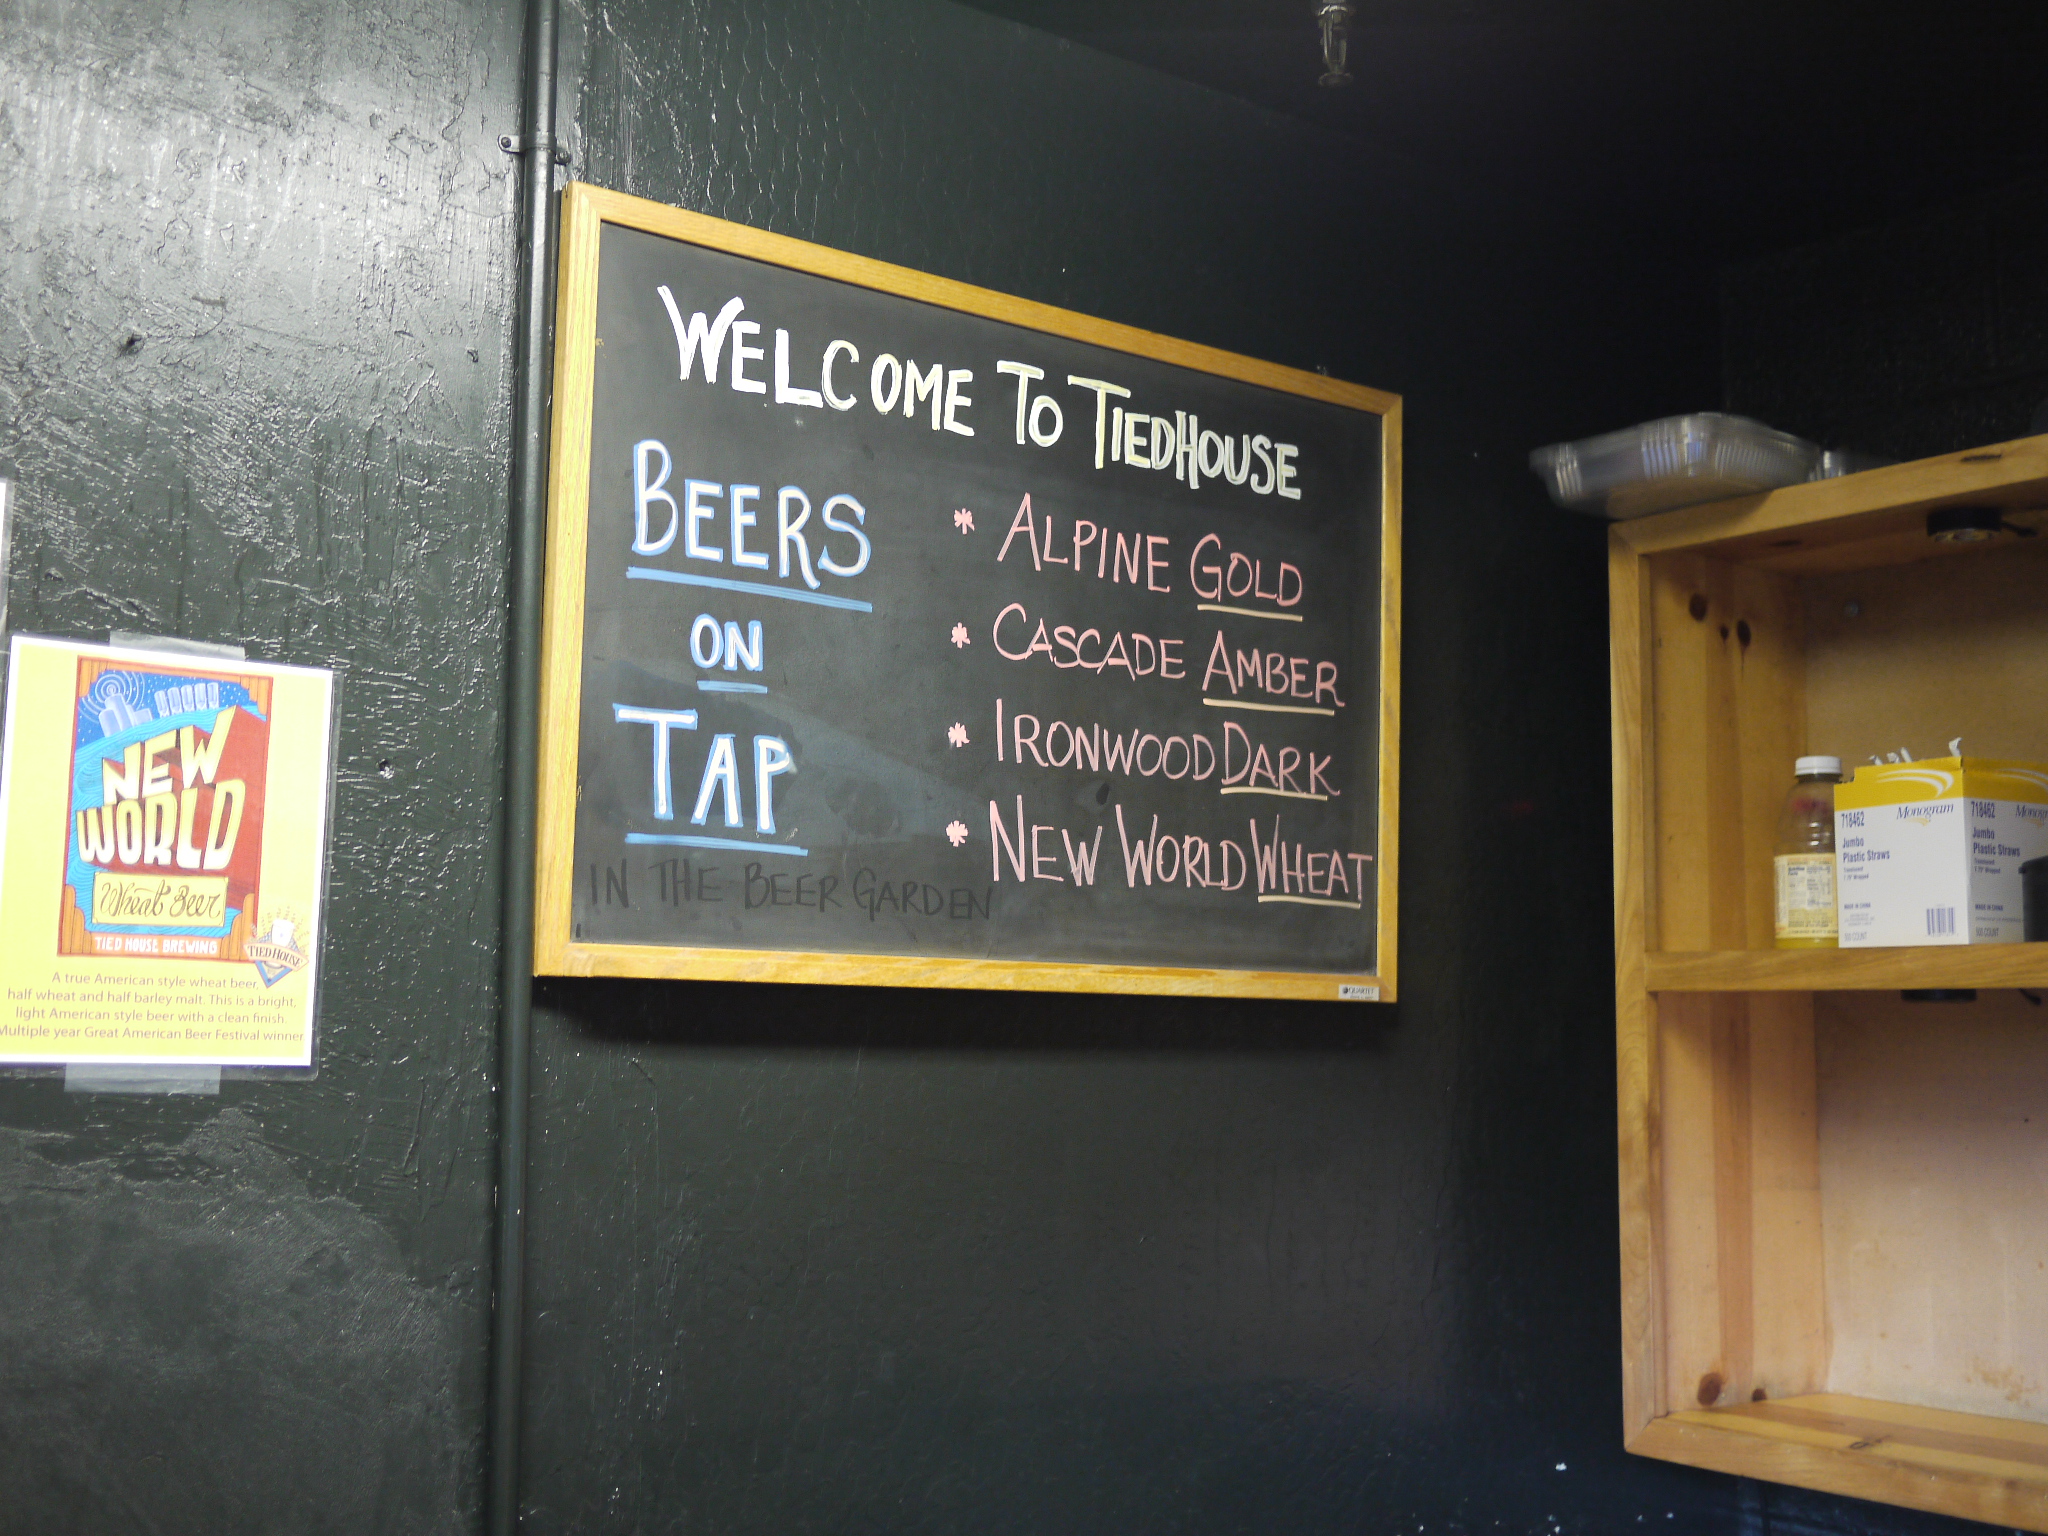 WELCOME TO TIEDHOUSE
BEERS
ON
TAP
IN THE BEER GARDEN
* ALPINE GOLD
* CASCADE AMBER
* IRONWOOD DARK
* NEW WORLD WHEAT
QUARTET
NEW
WORLD
Wheat Beer
TIED HOUSE BREWING
TIED HOUSE
A true American style wheat beer,
half wheat and half barley malt. This is a bright,
light American style beer with a clean finish.
Multiple year Great American Beer Festival winner
Monogram
718462
Jumbo
Plastic Straws
MADE IN CHINA
500 COUNT
718462
Jumbo
Plastic Straws
MADE IN CHINA
500 COUNT